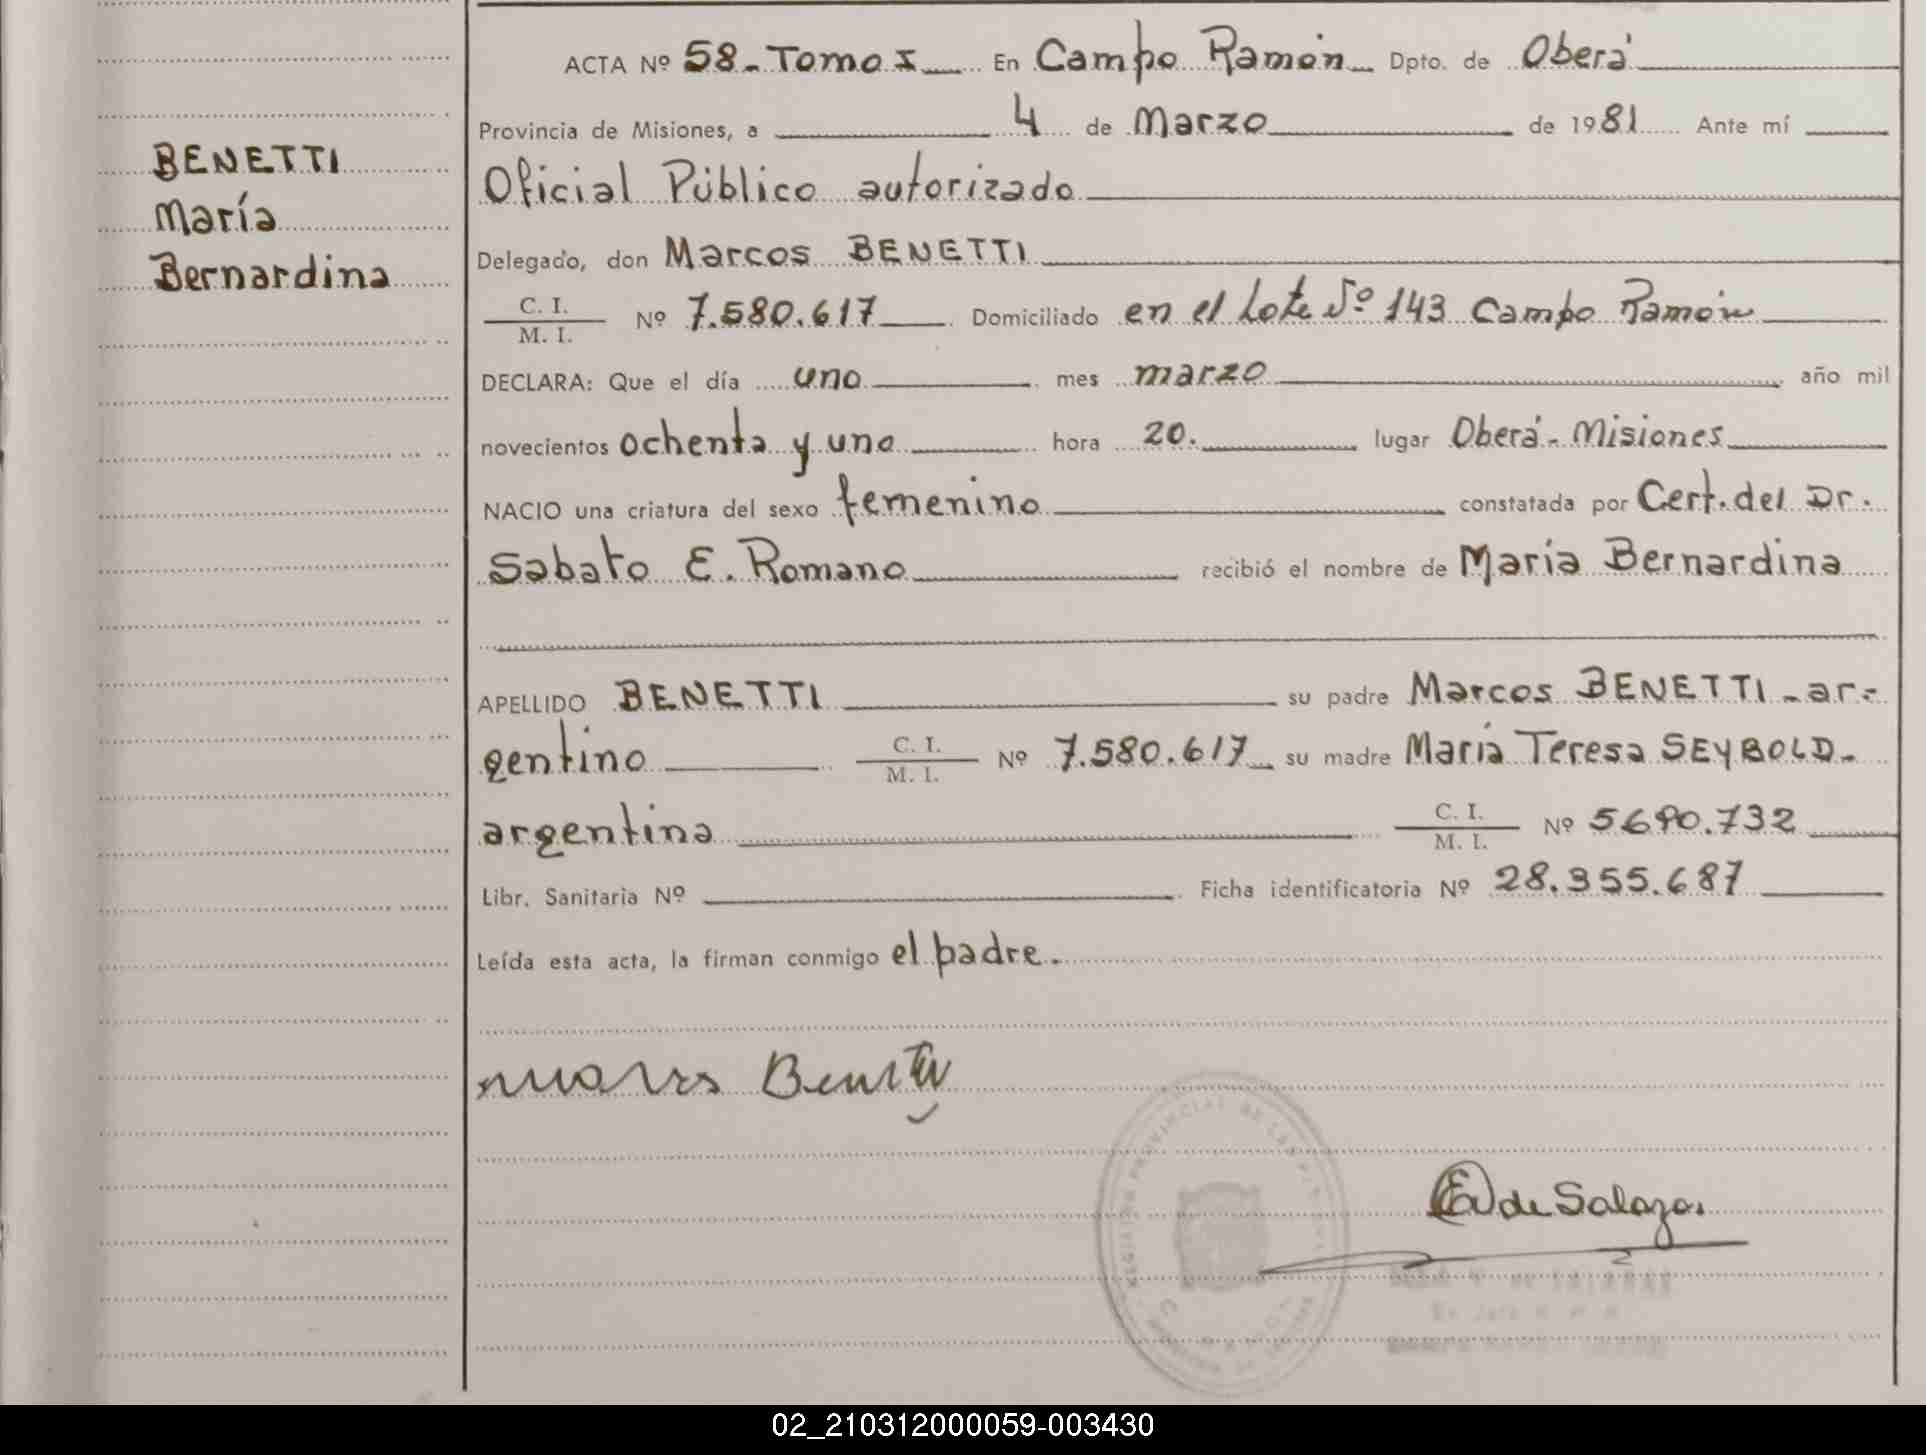 BENETTI
María
Bernardina
ACTA Nº 58-Tomo I En Campo Ramón Dpto. de Oberá
Provincia de Misiones, a 4 de Marzo de 1981 Ante mí
Oficial Público autorizado
Delegado, don Marcos BENETTI
C. I.
M. I. Nº 7.580.617 Domiciliado en el Lote Nº 143 Campo Ramón
DECLARA: Que el día uno mes marzo año mil
novecientos ochenta y uno hora 20. lugar Oberá-Misiones
NACIO una criatura del sexo femenino constatada por Cert. del Dr.
Sabato E. Romano recibió el nombre de María Bernardina
APELLIDO BENETTI su padre Marcos BENETTI-ar-
gentino C. I. M. I. Nº 7.580.617 su madre María Teresa SEYBOLD-
argentina C. I. M. I. Nº 5690.732
Libr. Sanitaria Nº Ficha identificatoria Nº 28.355.687
Leída esta acta, la firman conmigo el padre.
Marcos Benetti
de Salazar
REGISTRO PROVINCIAL DE LAS PERSONAS
02_210312000059-003430